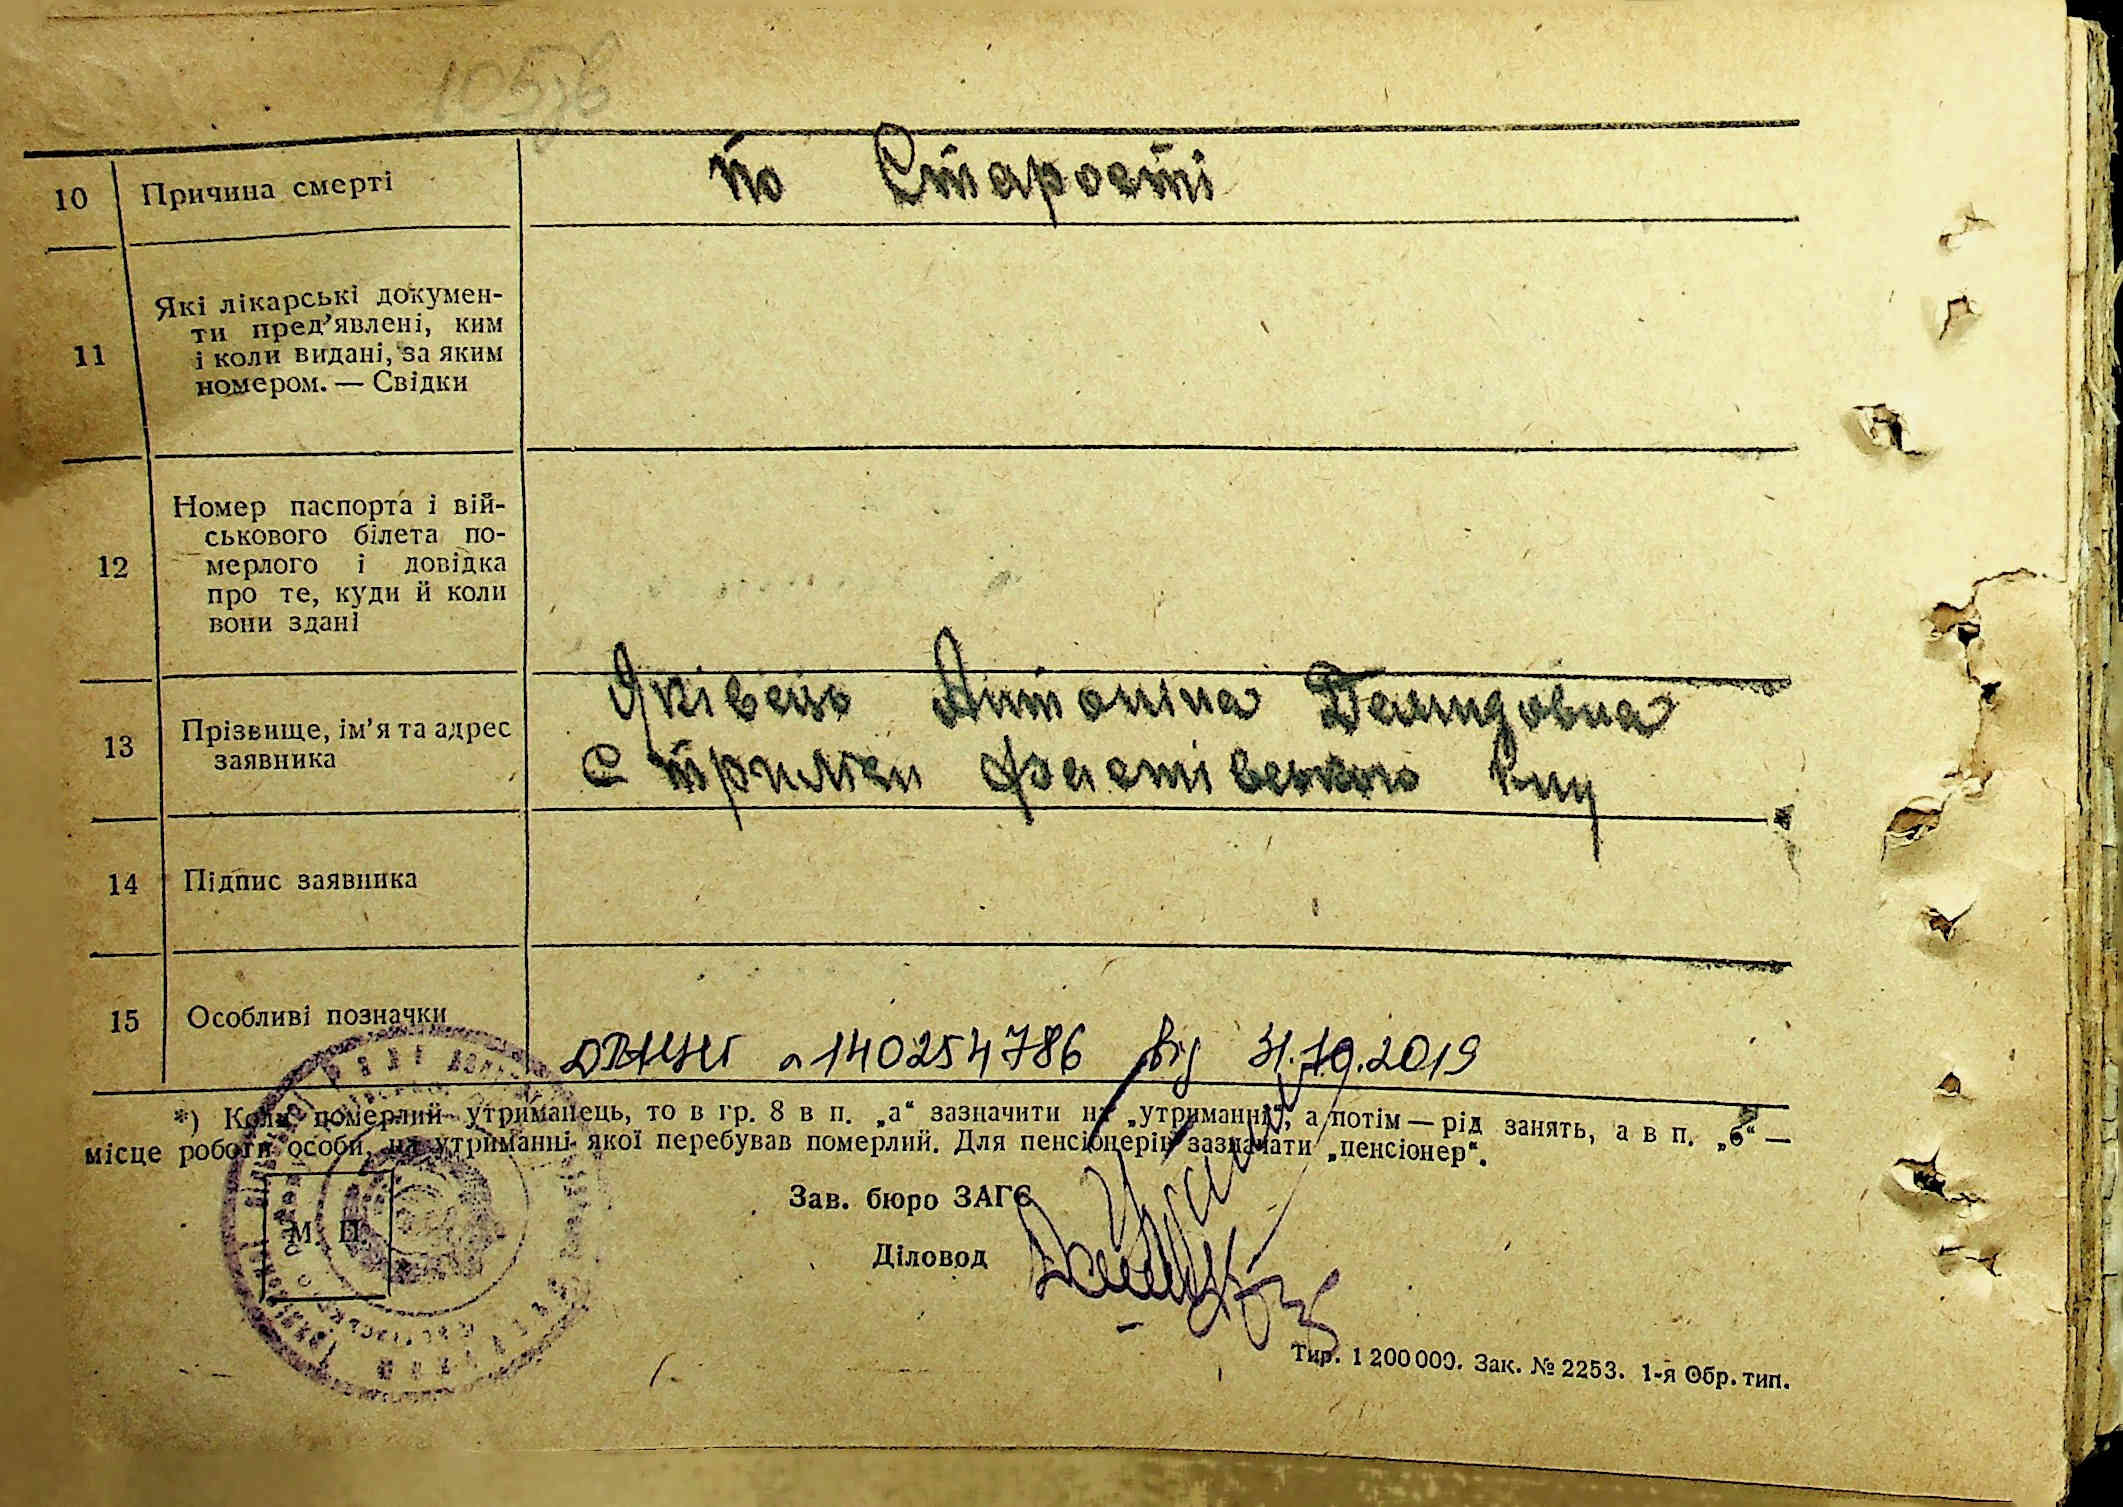 105зв
10 Причина смерті
по Старості
11 Які лікарські докумен-
ти пред’явлені, ким
і коли видані, за яким
номером. — Свідки
12 Номер паспорта і вій-
ськового білета по-
мерлого і довідка
про те, куди й коли
вони здані
13 Прізвище, ім’я та адрес
заявника
Яківець Антоніна Демидовна
с Трилєси Фастівського
14 Підпис заявника
15 Особливі позначки
140254786 від 31.10.2019
*) Коли померлий утриманець, то в гр. 8 в п. „а“ зазначити на „утриманні“, а потім — рід занять, а в п. „б“ —
місце роботи особи, на утриманні якої перебував померлий. Для пенсіонерів зазначати „пенсіонер“.
М. П.
Зав. бюро ЗАГС
Діловод
Тир. 1 200 000. Зак. № 2253. 1-я Обр. тип.